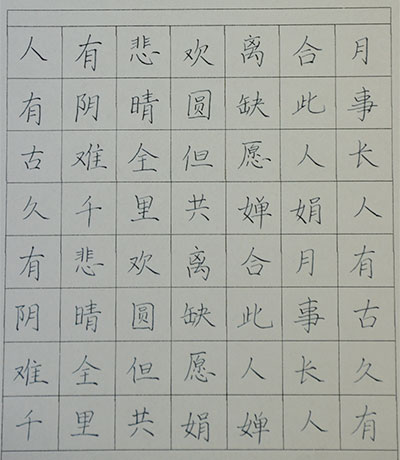 人有悲欢离合月
有阴晴圆缺此事
古难全但愿人长
久千里共婵娟人
有悲欢离合月有
阴晴圆缺此事古
难全但愿人长久
千里共娟婵人有